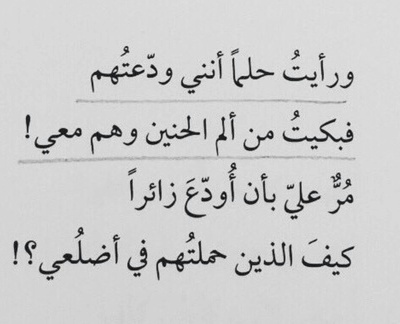 ورأيتُ حلماً أنني ودّعتُهم
فبكيتُ من ألم الحنين وهم معي!
مُرٌّ عليّ بأن أُودّعَ زائراً
كيفَ الذين حملتُهم في أضلُعي؟!